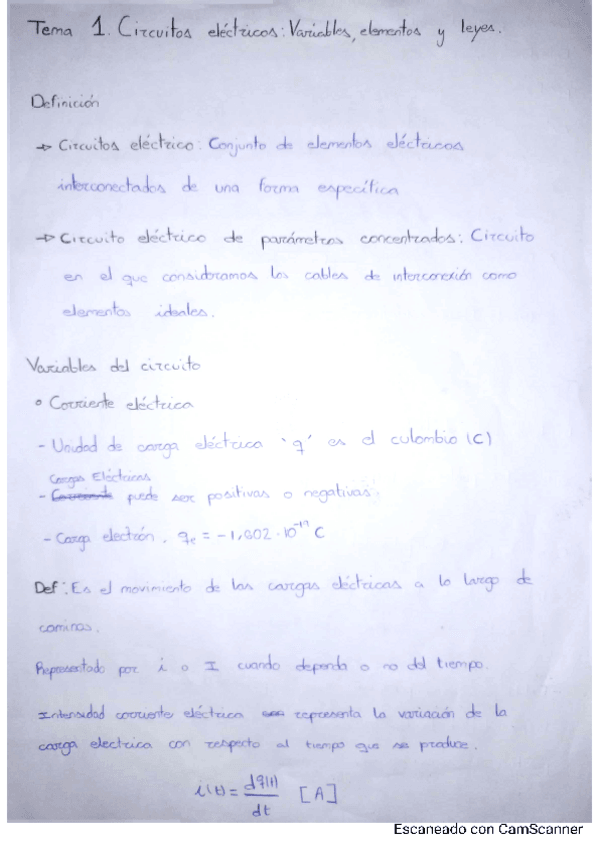 Tema 1. Circuitos eléctricos: Variables, elementos y leyes.
Definición
→ Circuitos eléctrico: Conjunto de elementos eléctricos
interconectados de una forma específica
→ Circuito eléctrico de parámetros concentrados: Circuito
en el que consideramos los cables de interconexión como
elementos ideales.
Variables del circuito
• Corriente eléctrica
- Unidad de carga eléctrica 'q' es el culombio (C)
Cargas Eléctricas
- puede ser positivas o negativas.
- Carga electrón. qe = -1,602 · 10⁻¹⁹ C
Def: Es el movimiento de las cargas eléctricas a lo largo de
caminos.
Representado por i o I cuando dependa o no del tiempo.
Intensidad corriente eléctrica representa la variación de la
carga electrica con respecto al tiempo que se produce.
i(t) = dq(t)/dt [A]
Escaneado con CamScanner